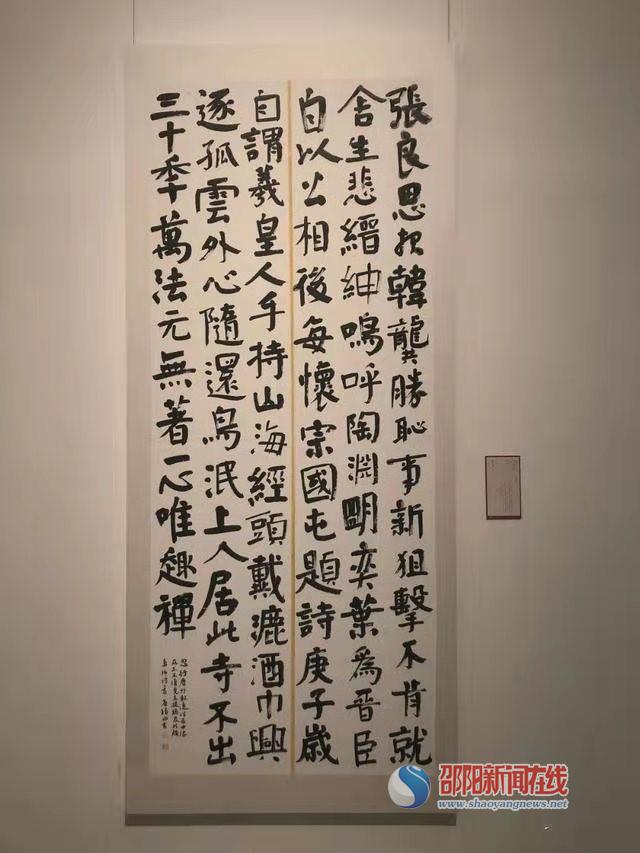 張良思報韓龔勝恥事新狙擊不肯就
舍生悲縉紳嗚呼陶淵明奕葉爲晉臣
自以公相後每懷宗國屯題詩庚子歲
自謂羲皇人手持山海經頭戴漉酒巾興
逐孤雲外心隨還鳥泯上人居此寺不出
三十秊萬法元無著一心唯趣禪
邵阳新闻在线
www.shaoyangnews.net